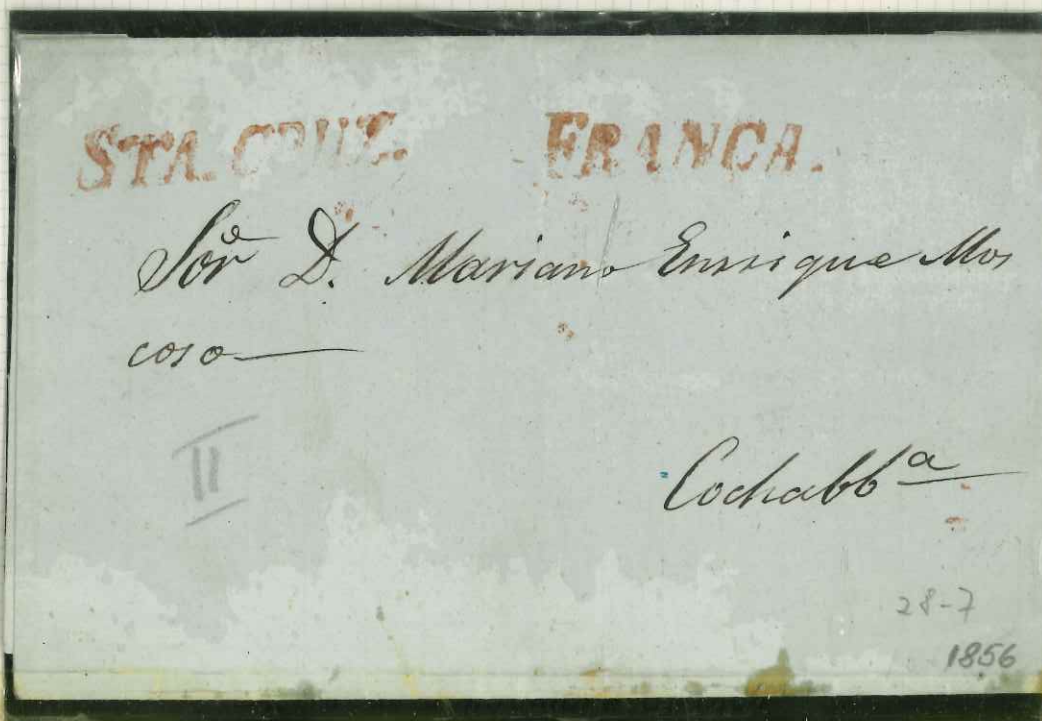 STA. CRUZ. FRANCA.
Sor D. Mariano Enrrique Mos
coso
II
Cochabba
28-7
1856